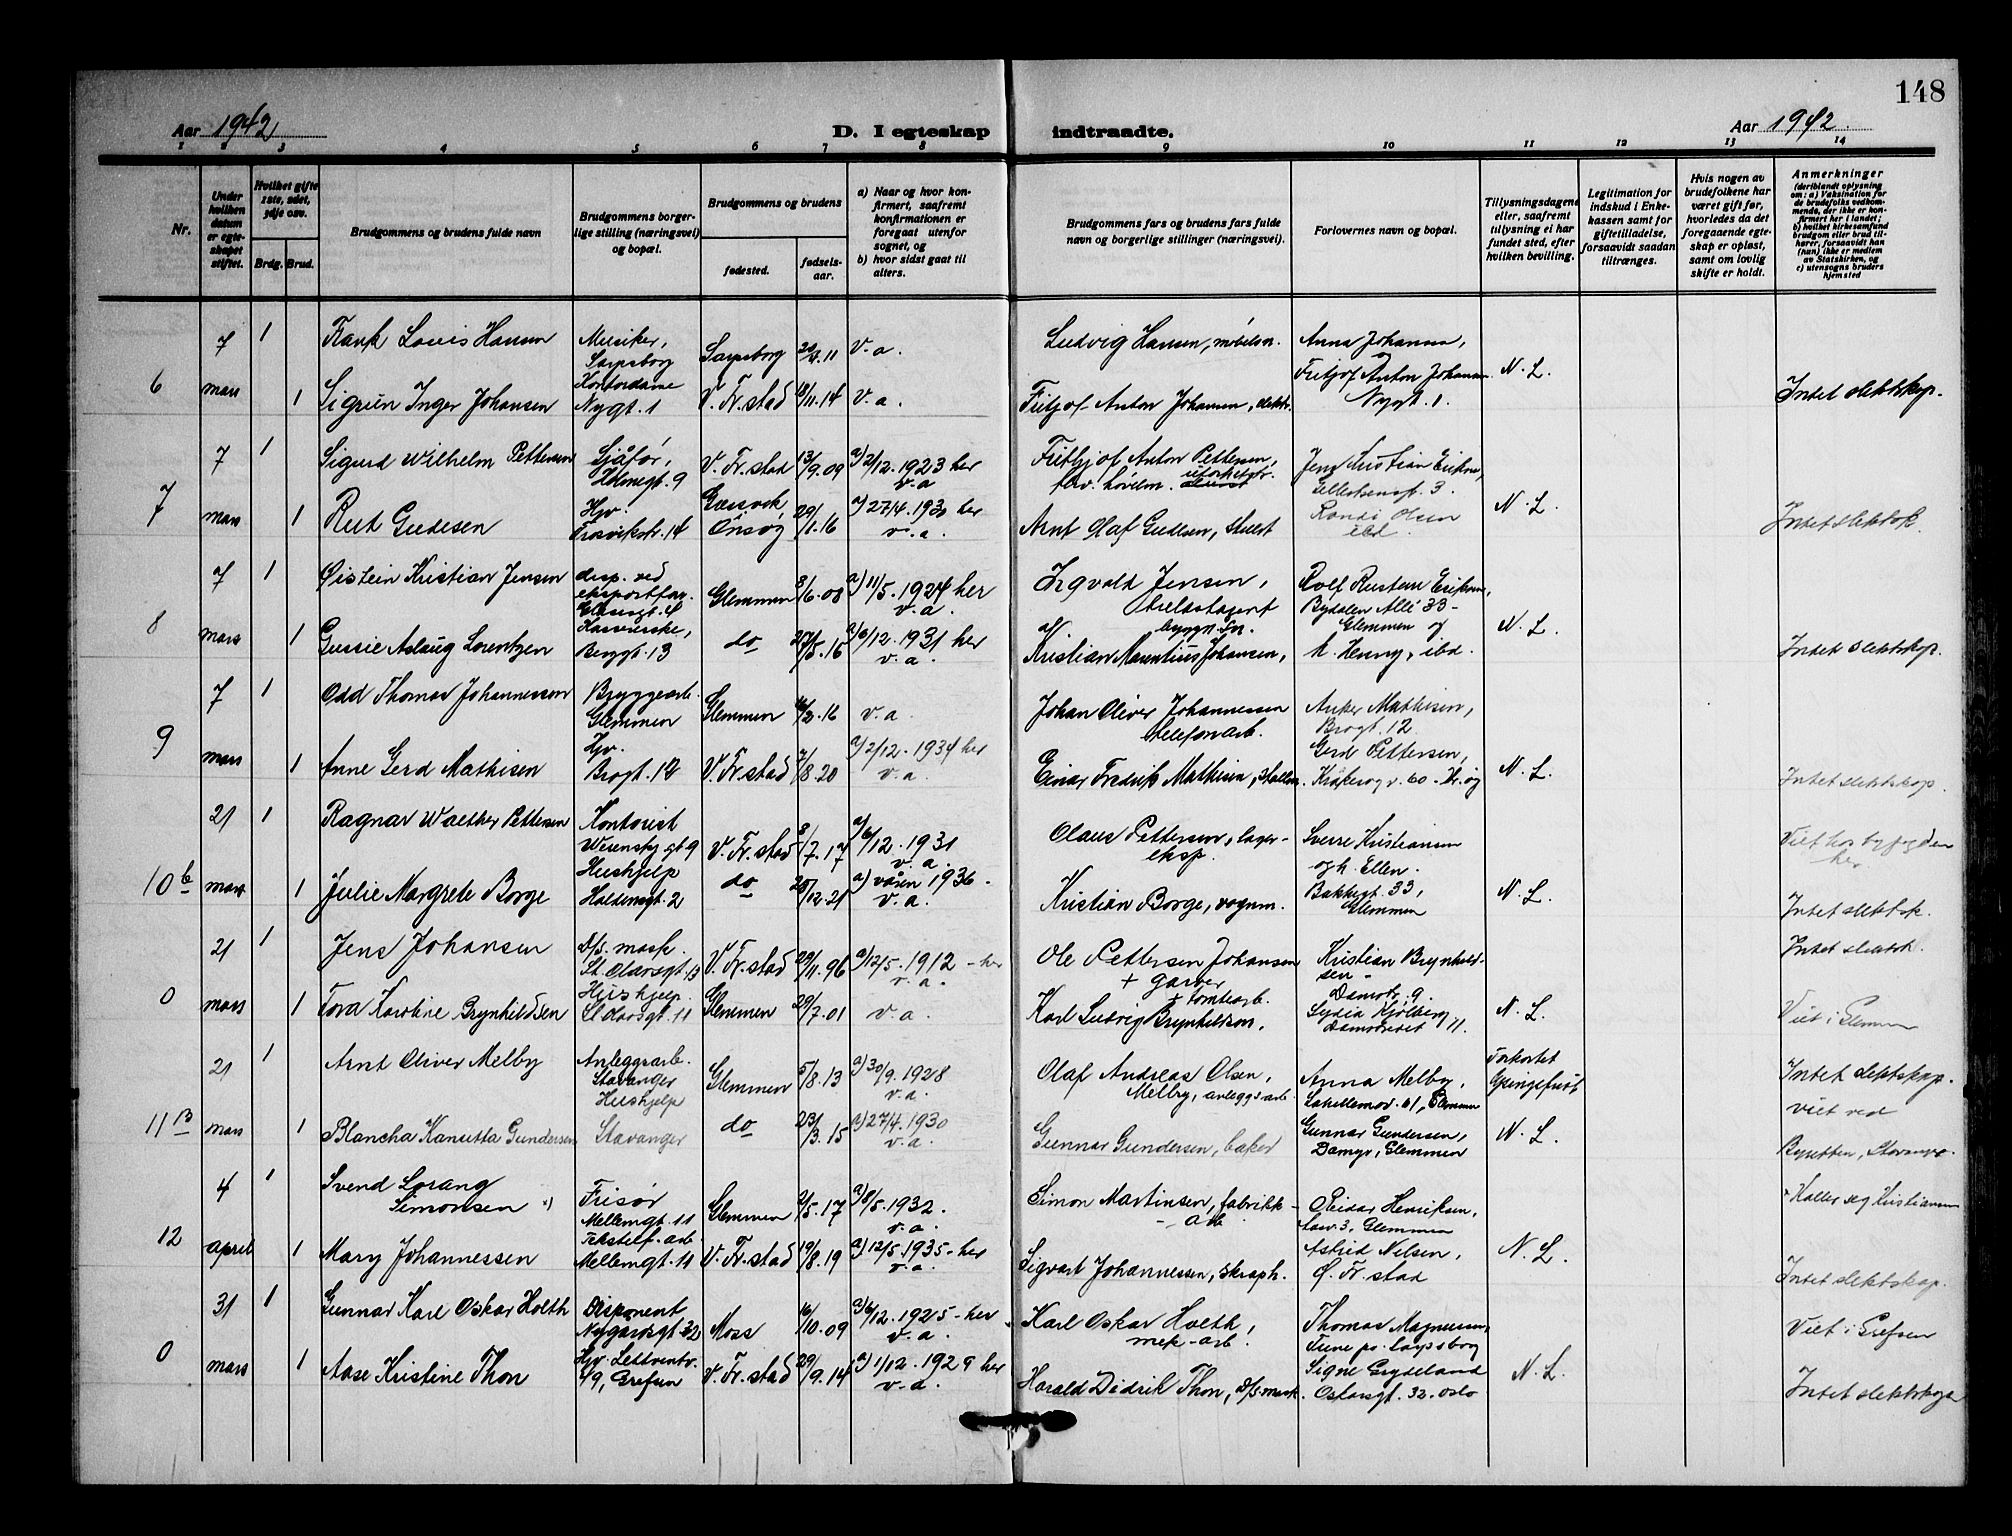 148
Aar 1942
D. I egteskap indtraadte.
Aar 1942.
1 2 3 4 5 6 7 8 9 10 11 12 13 14
Nr.
Under hvilken datum er egteskapet stiftet.
Hvilket gifte 1ste, 2det, 3dje osv.
Brdg. Brud.
Brudgommens og brudens fulde navn
Brudgommens borgerlige stilling (næringsvei) og bopæl.
Brudgommens og brudens
fødested.
fødselsaar.
a) Naar og hvor konfirmert, saafremt konfirmationen er foregaat utenfor sognet, og
b) hvor sidst gaat til alters.
Brudgommens fars og brudens fars fulde navn og borgerlige stillinger (næringsvei).
Forlovernes navn og bopæl.
Tillysningsdagene eller, saafremt tillysning ei har fundet sted, efter hvilken bevilling.
Legitimation for indskud i Enkekassen samt for giftetilladelse, forsaavidt saadan tiltrænges.
Hvis nogen av brudefolkene har været gift før, hvorledes da det foregaaende egteskap er opløst, samt om lovlig skifte er holdt.
Anmerkninger
(deriblandt oplysning om: a) Vaksination for de brudefolks vedkommende, der ikke er konfirmert her i landet; b) hvilket kirkesamfund brudgom eller brud tilhører, forsaavidt han (hun) ikke er medlem av Statskirken, og c) utensogns bruders hjemsted
7 1 Frank Louis Hansen Musiker, Sarpsborg Sarpsborg v.a. Ludvig Hansen, møbelsn. Anna Johansen,
6 mars 1 Sigrun Inger Johansen Kontordame Nygt. 1 V. Fr.stad 11.14 v.a. Fritjof Anton Johansen, Fritjof Anton Johansen Nygt. 1. N. L. Intet slektskap.
7 1 Sigurd Wilhelm Pettersen Sjåfør, Holmegt. 9 V. Fr.stad 13/9.09 a) 2/12.1923 her v.a Frithjof Anton Pettersen, Jens Kristian Eriksen,
7 mars 1 Rut Gudesen Hjv. Trosvikstr. 14 Gressvik, Onsøy 29/1.16 a) 27/4.1930 her v.a. Arnt Olaf Gudesen, Randi Olsen ibd. N. L. Intet slektsk.
7 1 Øistein Kristian Jensen disp. ved eksportfor. Glemmen 8/6.08 a) 11/5.1924 her v.a. Ingvald Jensen, Rolf Rustan Eriksen, Bydalen Alle 33 - Glemmen og
8 mars 1 Gussie Aslaug Lorentzen Kasserske, Beggt. 13 do a) 6/12.1931 her v.a. Kristian Mauritius Johansen, h. Henny, ibd. N. L. Intet slektskap.
7 1 Odd Thomas Johannessen Bryggearb. Glemmen Glemmen 2.16 v.a. Johan Oliver Johannessen telefonarb. Anker Mathisen, Brogt. 12.
9 mars 1 Anne Gerd Mathisen Hjv. Brogt. 12 V. Fr.stad 7/8.20 a) 2/12.1934 her v.a. Einar Fredrik Mathisen, Gerd Pettersen, Kråkerøy v. 60 - N. L. Intet slektskap.
21 1 Ragnar Walther Pettersen Kontorist V. Fr.stad 8/7.17 a) 6/12.1931 v.a. Olaus Pettersen, lagereksp. Sverre Kristiansen og h. Ellen. Viet hos byfogden her
10b mars 1 Julie Margrete Borge Hushjelp Haldensgt. 2 do 12.21 a) våren 1936. v.a. Kristian Borge, vognm. Bakkegt. 33, Glemmen N. L. Intet slektsk.
21 1 Jens Johansen D/S. mask. St. Olavsgt. 13 V. Fr.stad 29/11.96 a) 12/5.1912 - her v.a. Ole Pettersen Johansen + garver Kristian Brynhildsen - Damstr. 9. Intet slektsk.
0 mars 1 Tora Karoline Brynhildsen Hushjelp. St. Olavsgt. 11 Glemmen 29/7.01 v.a. Karl Ludvig Brynhildsen, + tomtearb. Lydia Kjølberg, 11. N. L. Viet i Glemmen
21 1 Arnt Oliver Melby Anleggsarb. Stavanger Glemmen 5/8.13 a) 30/9.1928 v.a. Olaf Andreas Olsen, Melby, anleggsarb. Anna Melby, 61, Glemmen Forkortet Intet slektskap.
11B mars 1 Blancha Kanutta Gundersen Hushjelp Stavanger do 23/3.15 a) 27/4.1930 v.a. Gunnar Gundersen, baker Gunnar Gundersen, Damyr, Glemmen N. L. viet ved Byretten, Stavanger.
4 1 Svend Lorang Simonsen Frisør Mellemgt. 11 Glemmen 2/5.17 a) 8/5.1932. v.a. Simon Martinsen, fabrikk- arb. Reidar Henriksen, Glemmen Kaller seg Kristiansen
12 april 1 Mary Johannessen Tekstilf. arb. Mellemgt. 11 V. Fr.stad 19/8.19 a) 12/5.1935 - her v.a. Sigvart Johannessen, Astrid Nilsen, Ø. Fr.stad N. L. Intet slektskap.
31 1 Gunnar Karl Oskar Holth Disponent Nygårdsgt. 32 Moss 16/10.09 a) 6/12.1925 - her v.a. Karl Oskar Holth, mek-arb. Thomas Magnussen, Tune pr. Sarpsborg Viet i Grefsen
0 mars 1 Aase Kristine Thon Hjv. 49, Grefsen V. Fr.stad 29/9.14 a) 1/12.1929 her v.a. Harald Didrik Thon, D/S mask. Signe Grydeland Oslo N. L. Intet slektskap